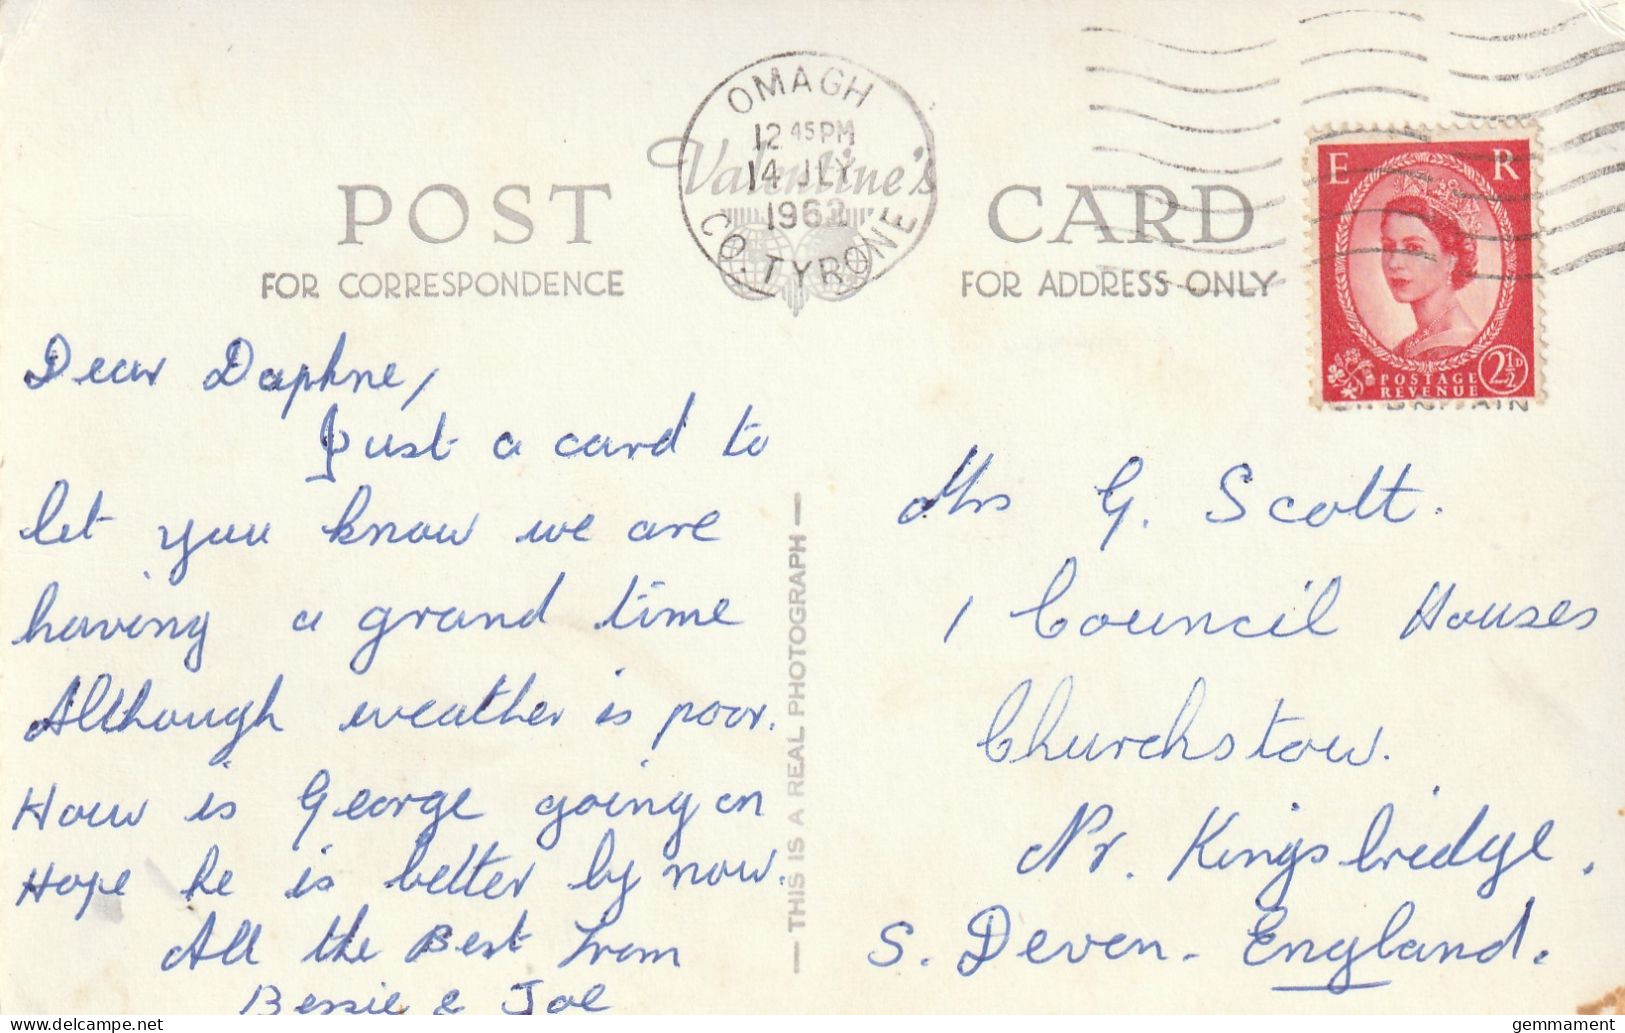 OMAGH
12 45 PM
14 JLY
1962
CO. TYRONE
Valentine's
POST CARD
FOR CORRESPONDENCE
FOR ADDRESS ONLY
E R
POSTAGE
REVENUE
2½D
Dear Daphne,
Just a card to
let you know we are
having a grand time
Although weather is poor.
How is George going on
Hope he is better by now.
All the Best From
Bessie & Joe
THIS IS A REAL PHOTOGRAPH
Mrs G. Scott.
1 Council Houses
Churchstow.
Nr. Kingsbridge.
S. Deven. England.
gemmament